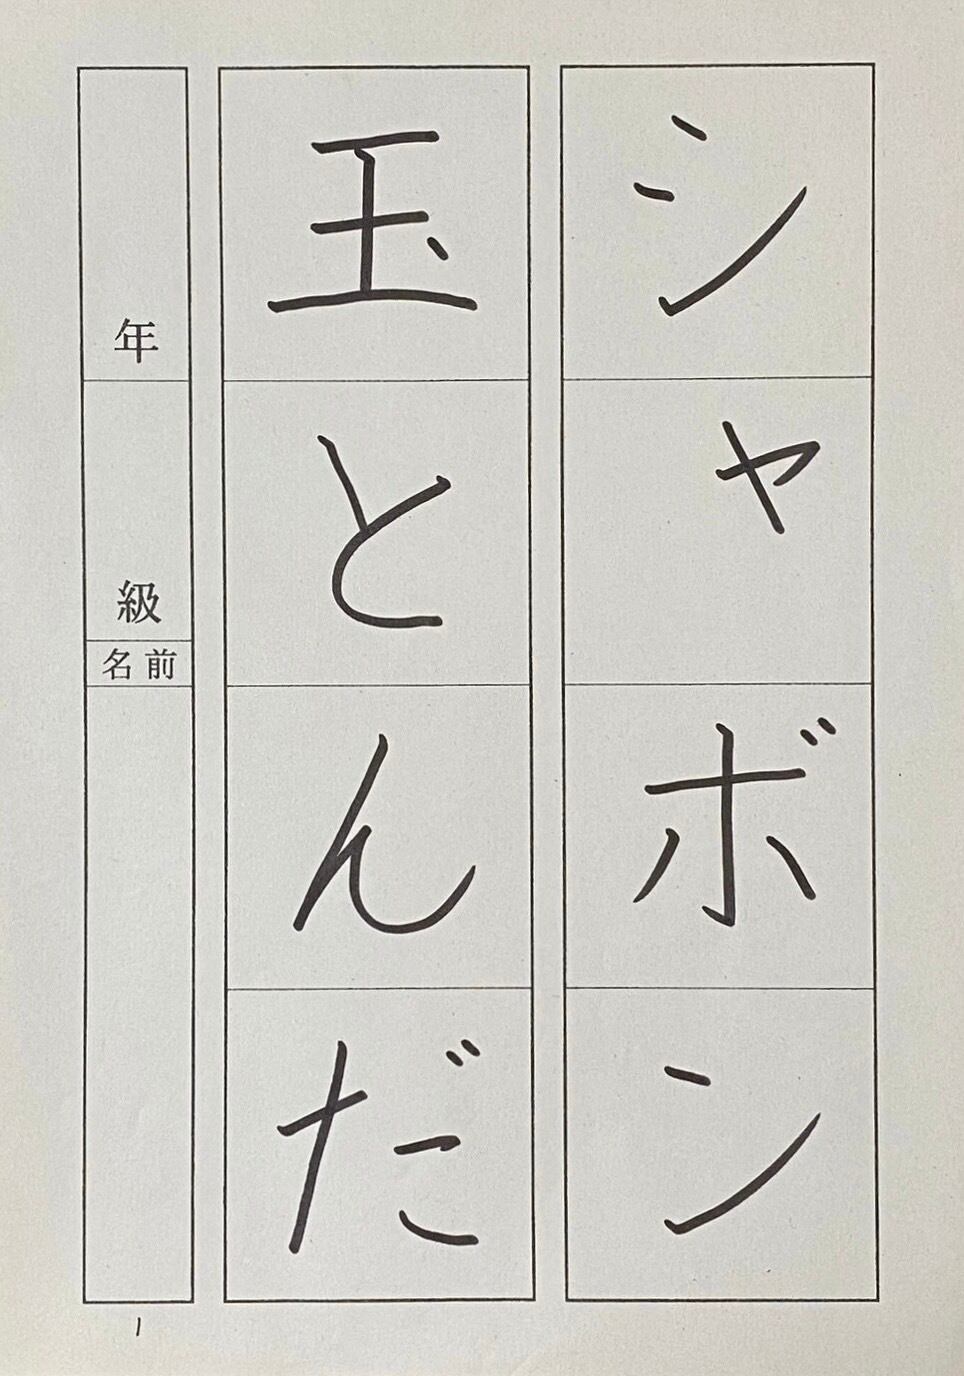 シャボン
玉とんだ
年
級
名前
1